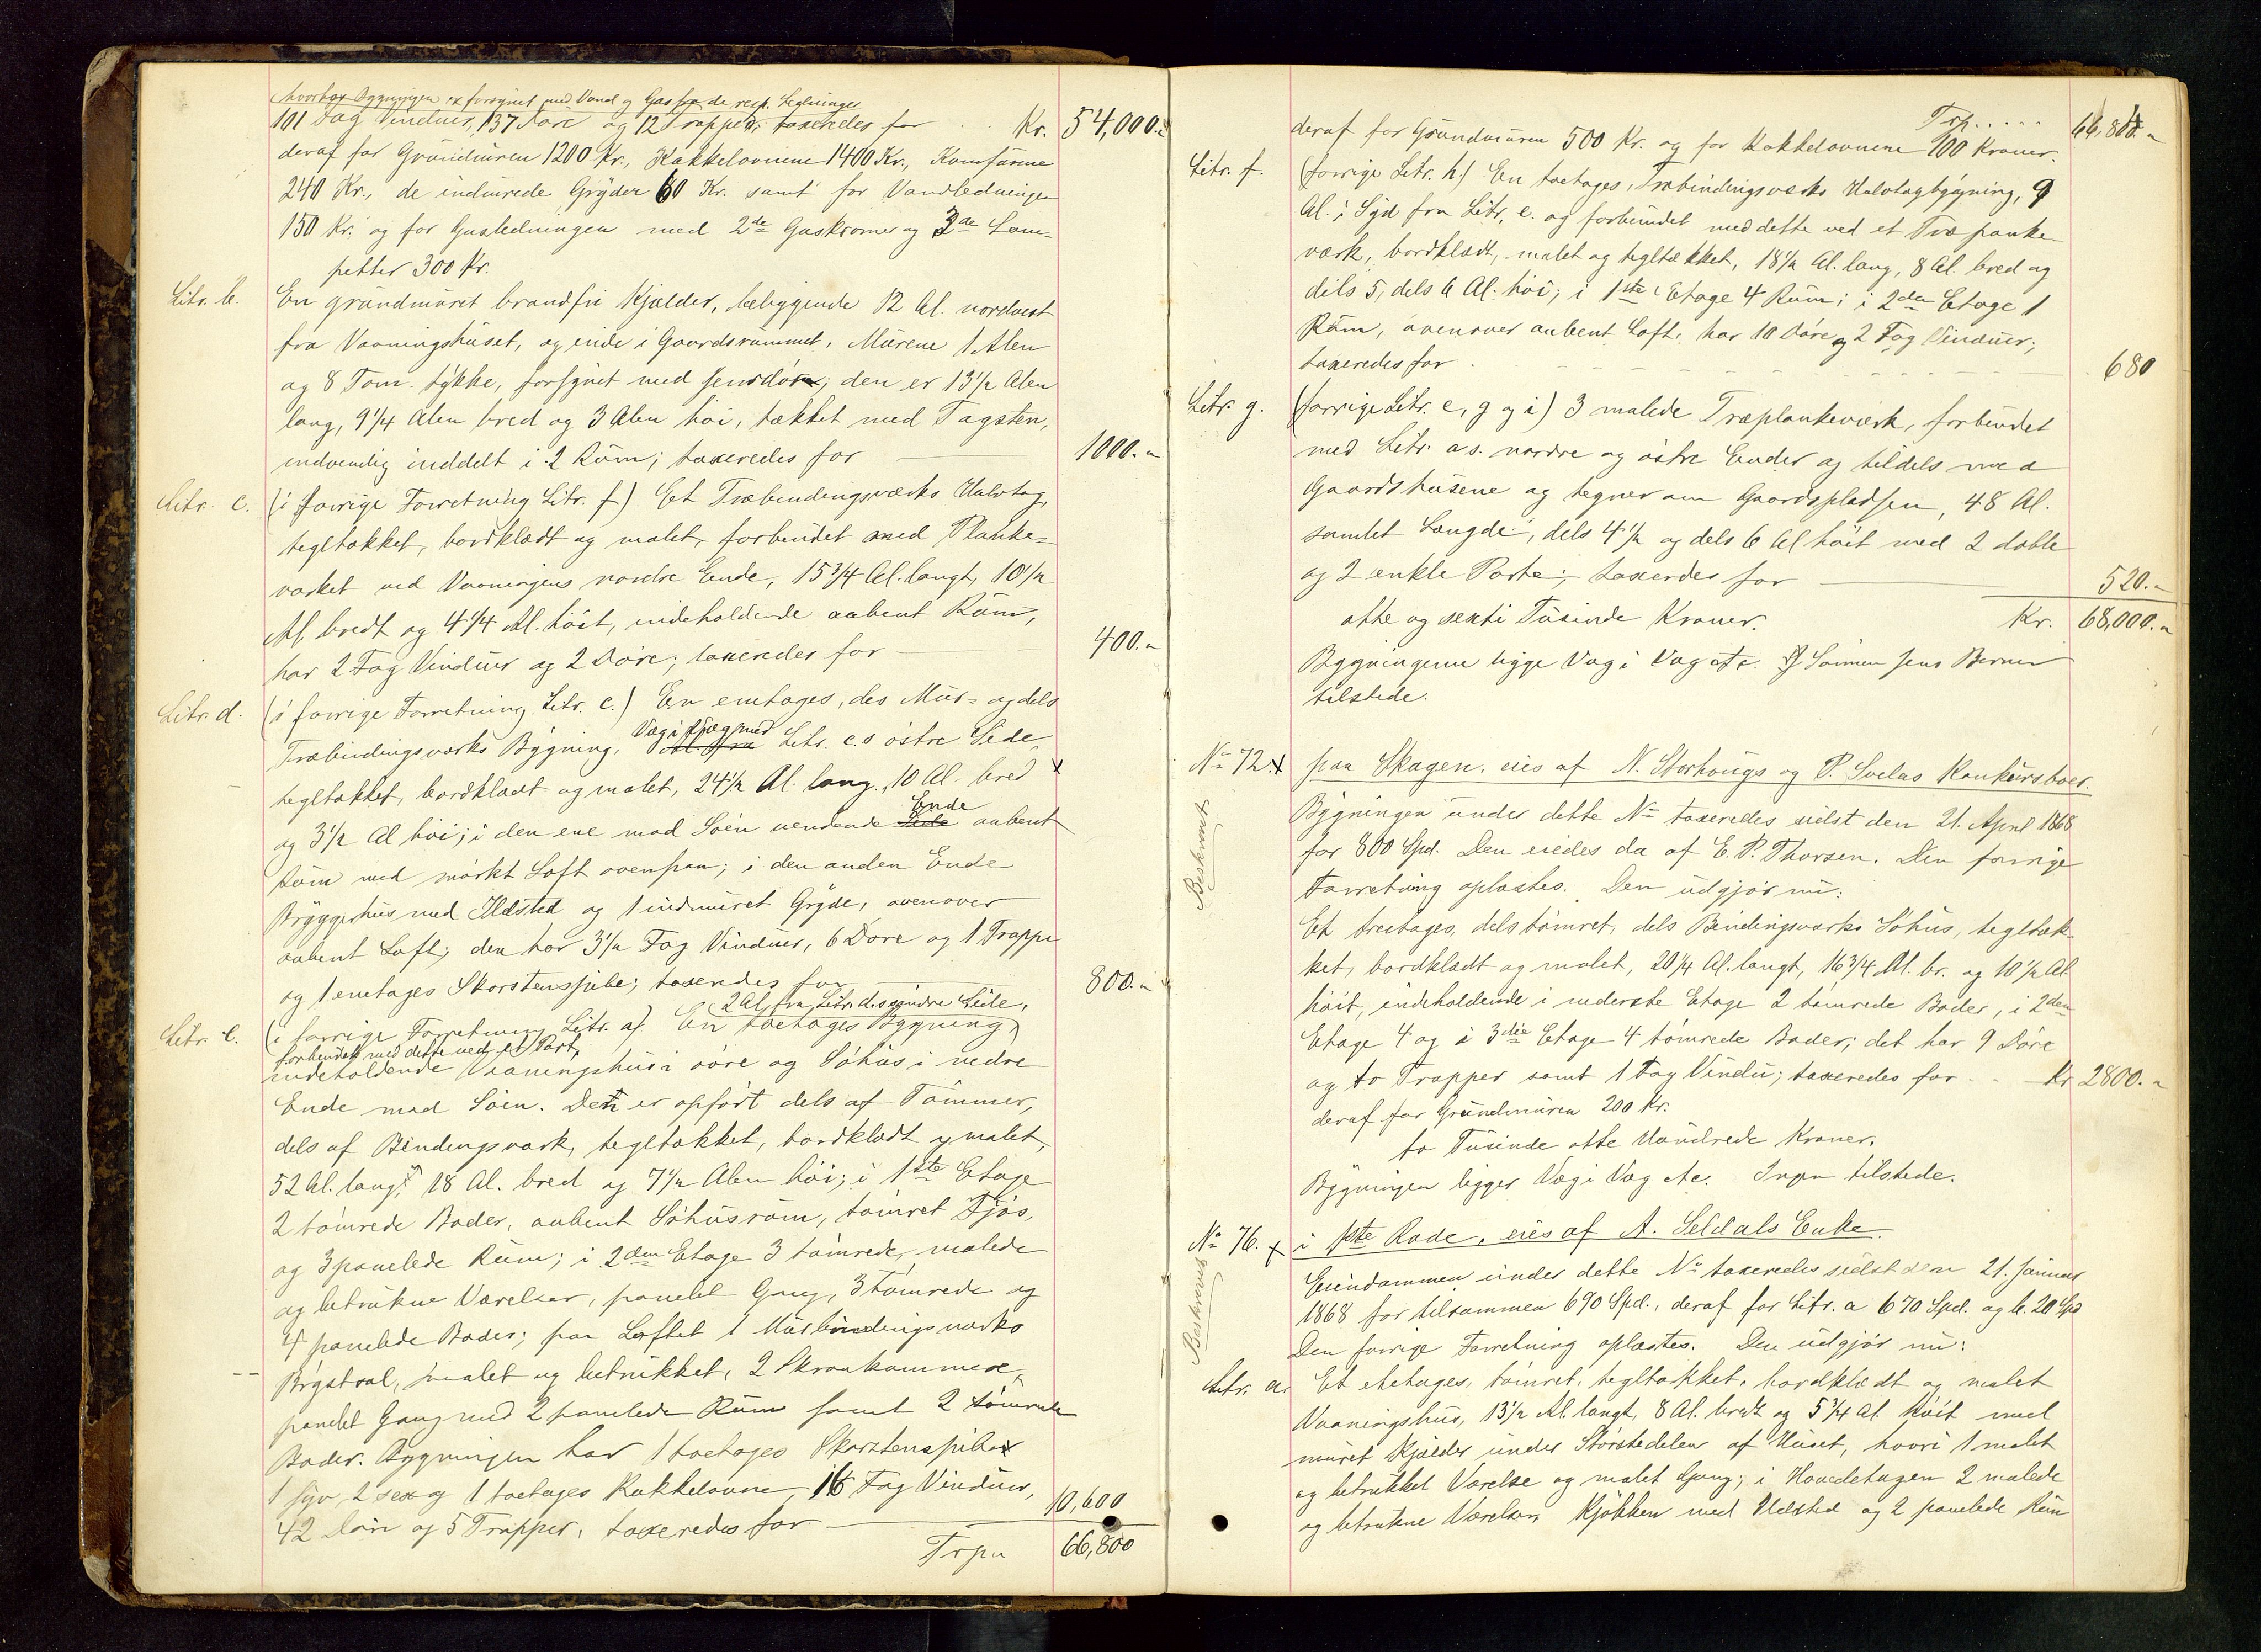 hvorhos Bygningen er forsynet med Vand og Gas fra de resp. Ledninger
101 Fag Vinduer, 137 Døre og 12 Trapper, taxeredes for . . Kr. 54,000.-
deraf for Grundmuren 1200 Kr., Kakkelovnene 1400 Kr., Komfurene
240 Kr., de indmurede Gryder 60 Kr. samt for Vandledningen
150 Kr. og for Gasledningen med 2de Gaskroner og 3de Lam-
petter 300 Kr.
Litr. b. En grundmuret brandfri Kjælder, beliggende 12 Al. nordvest
fra Vaaningshuset, og inde i Gaardsrummet, Murene 1 Alen
og 8 Tom. tykke, forsynet med Jerndør; den er 13 1/2 Alen
lang, 9 1/4 Alen bred og 3 Alen høi, tækket med Tagsten,
indvendig inddelt i 2 Rum; taxeredes for 1000.-
Litr. c. (i forrige Forretning Litr. f) Et Træbindingsværks Halvtag,
tegltækket, bordklædt og malet, forbundet med Planke-
værket ved Vaaningens nordre Ende, 15 3/4 Al. langt, 10 1/2
Al. bredt og 4 1/4 Al. høit, indeholdende aabent Rum,
har 2 Fag Vinduer og 2 Døre; taxeredes for 400.-
Litr. d. (i forrige Forretning Litr. c.) En enetages, dels Mur- og dels
Træbindingsværks Bygning, Væg i Væg med Litr. c.s østre Side,
tegltækket, bordklædt og malet, 24 1/2 Al. lang, 10 Al. bred
og 3 1/2 Al høi; i den ene mod Søen vendende Side Ende aabent
Rum med mørkt Loft ovenpaa; i den anden Ende
Bryggerhus med Ildsted og 1 indmuret Gryde, ovenover
aabent Loft; den har 3 1/2 Fag Vinduer, 6 Døre og 1 Trappe
og 1 enetages Skorstenspibe; taxeredes for 800.-
2 Al. fra Litr. d.s søndre Side,
Litr. e. (i forrige Forretning Litr. a). En toetages Bygning,
forbundet med dette ved et Port,
indeholdende Vaaningshus i øvre og Søhus i nedre
Ende mod Søen. Den er opført dels af Tømmer,
dels af Bindingsværk, tegltækket, bordklædt og malet,
52 Al. lang, 18 Al. bred og 7 1/2 Alen høi; i 1ste Etage
2 tømrede Boder, aabent Søhusrum, tømret Fjøs,
og 3 panelede Rum; i 2den Etage 3 tømrede, malede
og betrukne Værelser, panelet Gang, 3 tømrede og
4 panelede Boder; paa Loftet 1 Murbindingsværks
Brystsal, malet og betrukket, 2 Skraakammere,
panelet Gang med 2 panelede Rum samt 2 tømrede
Boder. Bygningen har 1 toetages Skorstenspibe
1 syv, 2 sex og 1 toetages Kakkelovne, 16 Fag Vinduer,
42 Døre og 5 Trapper, taxeredes for 10,600
Trp. 66,800
Trp. . . . . . 66,800.-
deraf for Grundmuren 500 Kr. og for Kakkelovnene 100 Kroner.
Litr. f. (forrige Litr. h) En toetages, Træbindingsværks Halvtagbygning, 9
Al. i Syd fra Litr. e. og forbundet med dette ved et Træplanke-
værk, bordklædt, malet og tegltækket, 18 1/2 Al. lang, 8 Al. bred og
dels 5, dels 6 Al. høi; i 1ste Etage 4 Rum; i 2den Etage 1
Rum, ovenover aabent Loft, har 10 Døre og 2 Fag Vinduer;
taxeredes for . 680
Litr. g. (forrige Litr. e, g og i) 3 malede Træplankeværk, forbundet
med Litr. a s. nordre og østre Ender og tildels med
Gaardshusene og hegner om Gaardspladsen, 48 Al.
samlet Længde, dels 4 1/2 og dels 6 Al høit med 2 doble
og 2 enkle Porte; taxerdes for 520.-
otte og sexti Tusinde Kroner. Kr. 68,000.-
Bygningerne ligge Væg i Væg etc. Sønnen Jens Berner
tilstede.
No 72. paa Skagen, eies af N. Storhougs og P. Svelas Konkursboer.
Beskrevet.
Bygningen under dette No taxeredes sidst den 21. April 1868
for 800 Spd. Den eiedes da af E. P. Thorsen. Den forrige
Forretning oplæstes. Den udgjør nu:
Et treetages, dels tømret, dels Bindingsværks Søhus, tegltæk-
ket, bordklædt og malet, 20 1/4 Al. langt, 16 3/4 Al. br. og 10 1/2 Al.
høit, indeholdende i nederste Etage 2 tømrede Boder, i 2den
Etage 4 og i 3die Etage 4 tømrede Boder; det har 9 Døre
og to Trapper samt 1 Fag Vindu; taxeredes for . . Kr 2800.-
deraf for Grundmuren 200 Kr.
to Tusinde otte Hundrede Kroner.
Bygningen ligger Væg i Væg etc. Ingen tilstede.
No 76. i 1ste Rode, eies af A. Seldals Enke.
Beskrevet
Eiendommen under dette No taxeredes sidst den 21. Januar
1868 for tilsammen 690 Spd., deraf for Litr. a 670 Spd. og b. 20 Spd
Den forrige Forretning oplæstes. Den udgjør nu:
Litr. a. Et etetages, tømret, tegltækket, bordklædt og malet
Vaaningshus, 13 1/2 Al. langt, 8 Al. bredt og 5 3/4 Al. høit med
muret Kjælder under Størstedelen af Huset, hvori 1 malet
og betrukket Værelse og malet Gang; i Hovedetagen 2 malede
og betrukne Værelser, Kjøkken med Ildsted og 2 panelede Rum